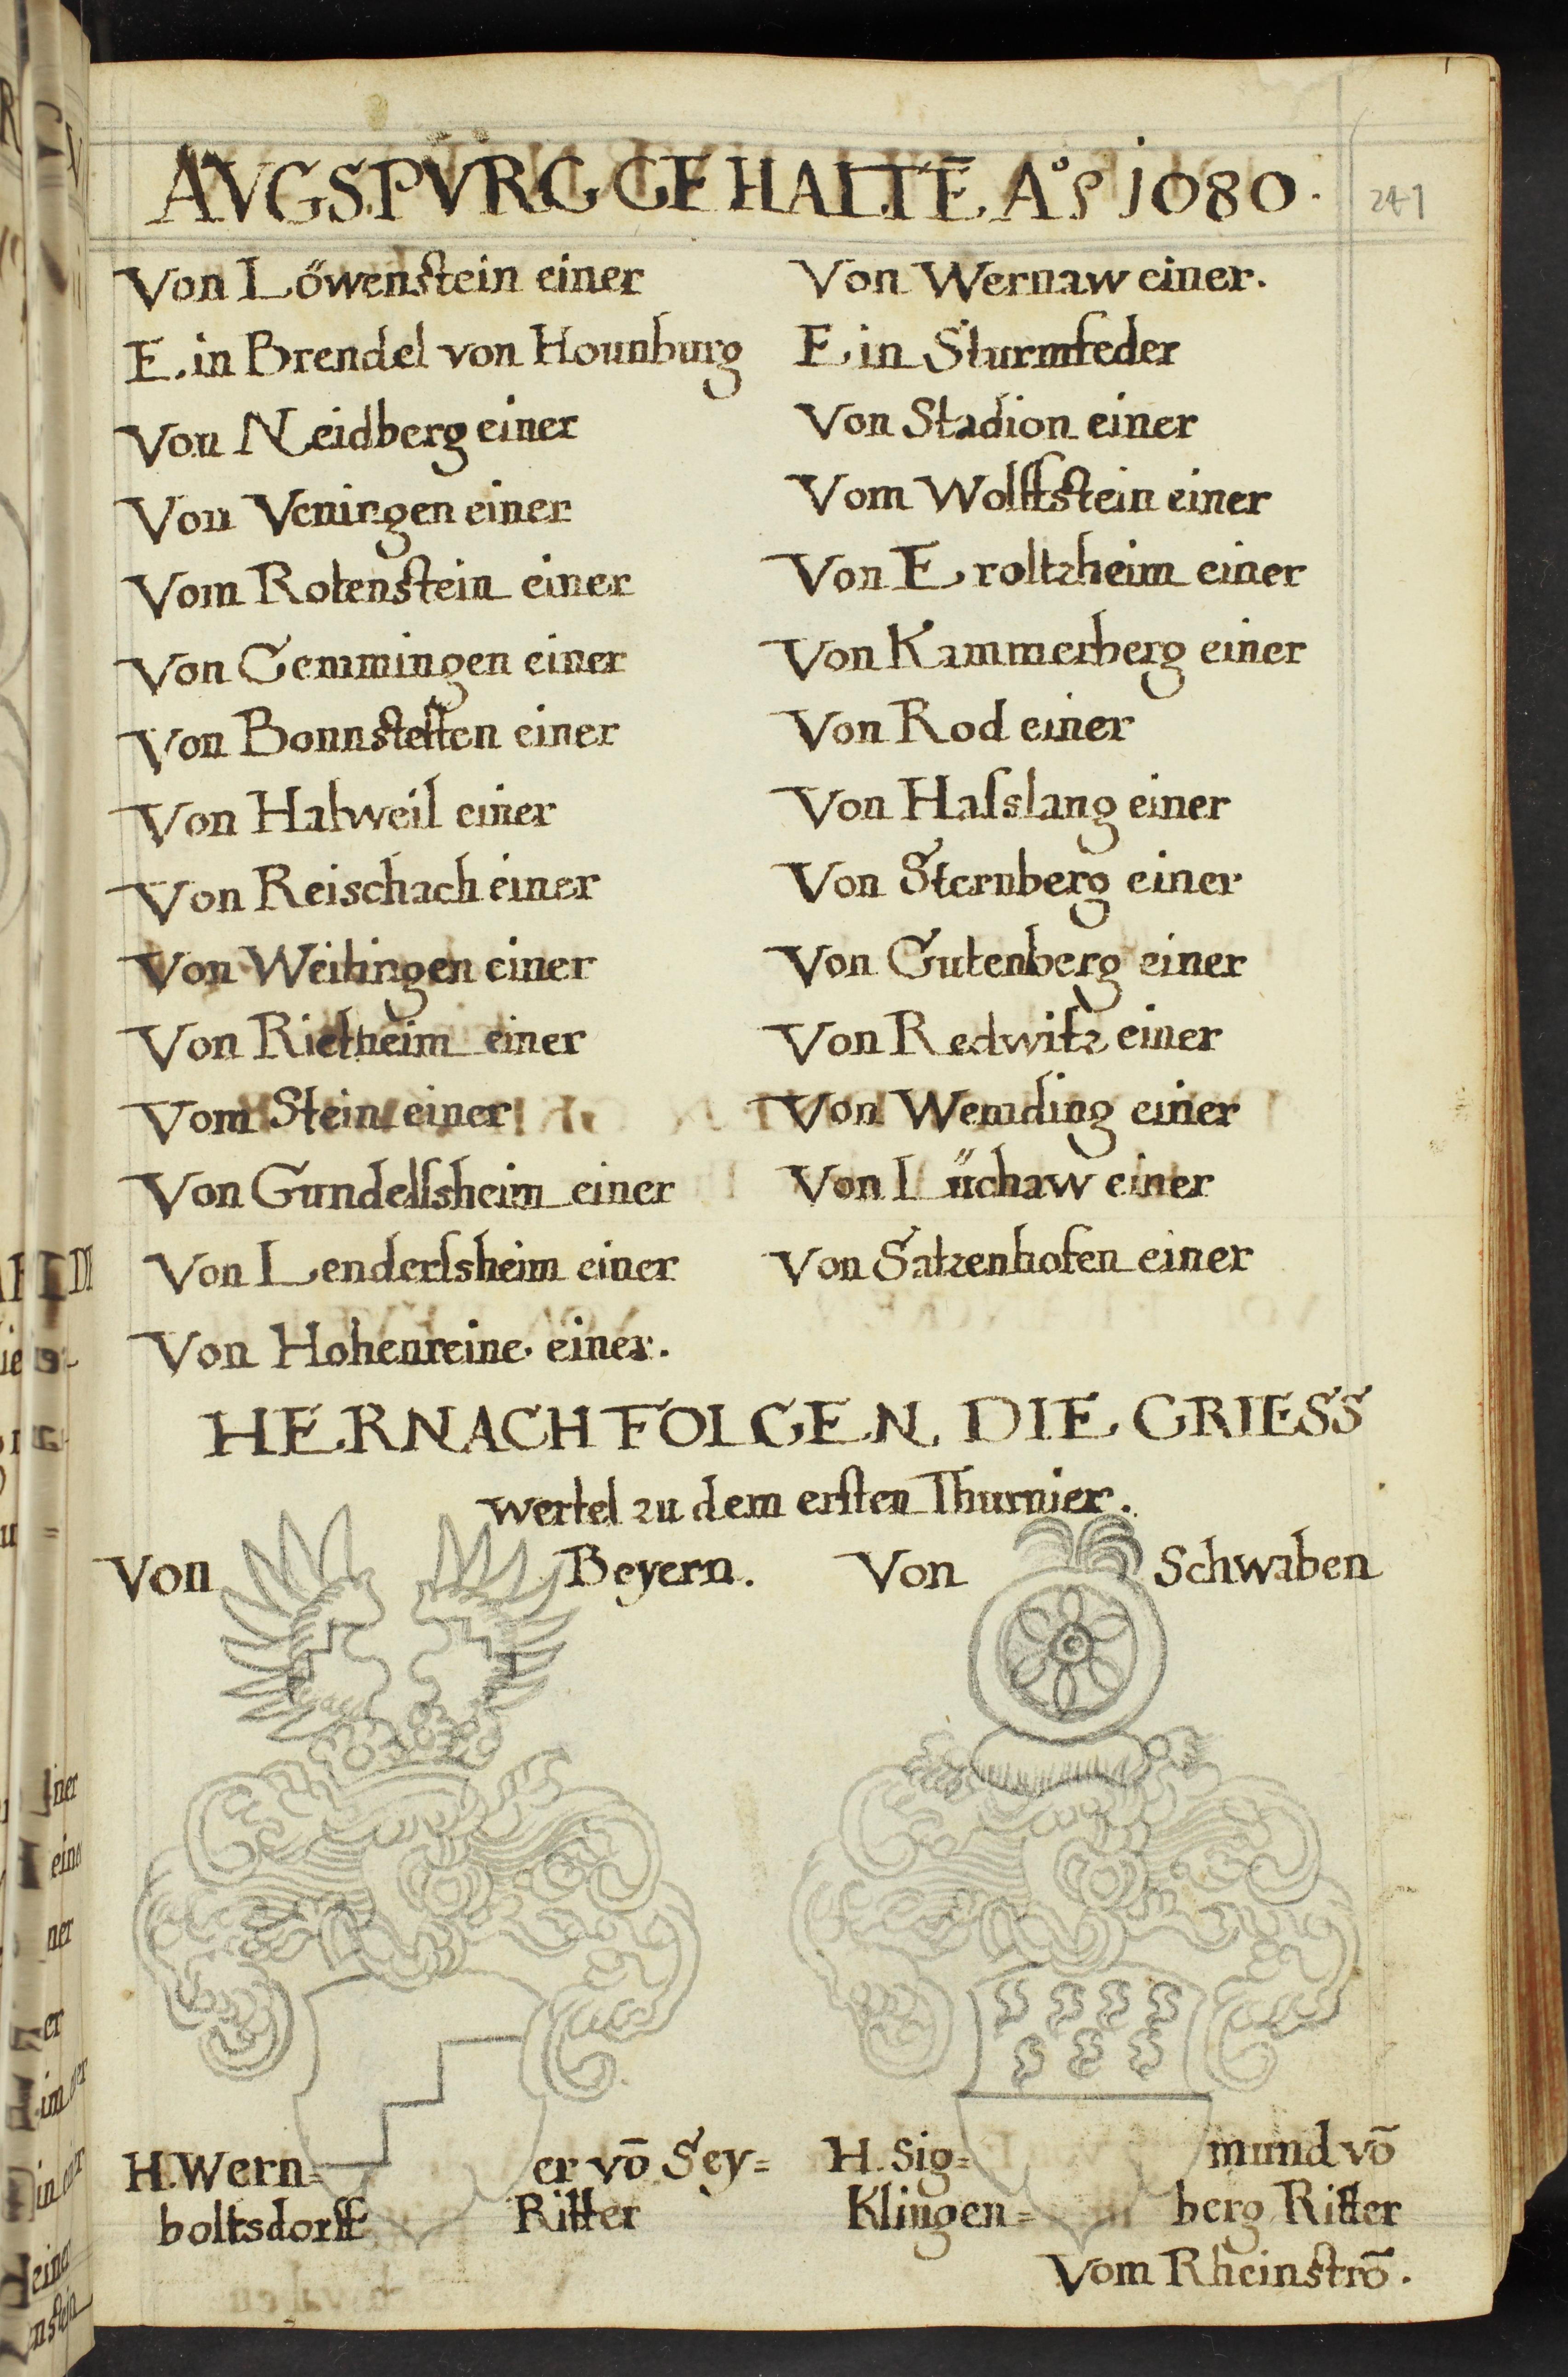 AVGSPVRG GEHALTĒ A° 1080.
241
Von Löwenstein einer
Ein Brendel von Hounburg
Von Neidberg einer
Von Veningen einer
Vom Rotenstein einer
Von Gemmingen einer
Von Bonnstetten einer
Von Halweil einer
Von Reischach einer
Von Weitingen einer
Von Rietheim einer
Vom Stein einer
Von Gundelsheim einer
Von Lenderſsheim einer
Von Hohenreine einer.
Von Wernaw einer.
Ein Sturmfeder
Von Stadion einer
Vom Wolffstein einer
Von Eroltzheim einer
Von Kammerberg einer
Von Rod einer
Von Haſslang einer
Von Sternberg einer
Von Gutenberg einer
Von Redwitz einer
Von Wemding einer
Von Lüchaw einer
Von Satzenhofen einer
HERNACH FOLGEN DIE GRIESS
wertel zu dem ersten Thurnier.
Von Beyern.
H. Wern= er vō Sey=
boltsdorff Ritter
Von Schwaben
H. Sig= mund vō
Klingen= berg Ritter
Vom Rheinstrō.